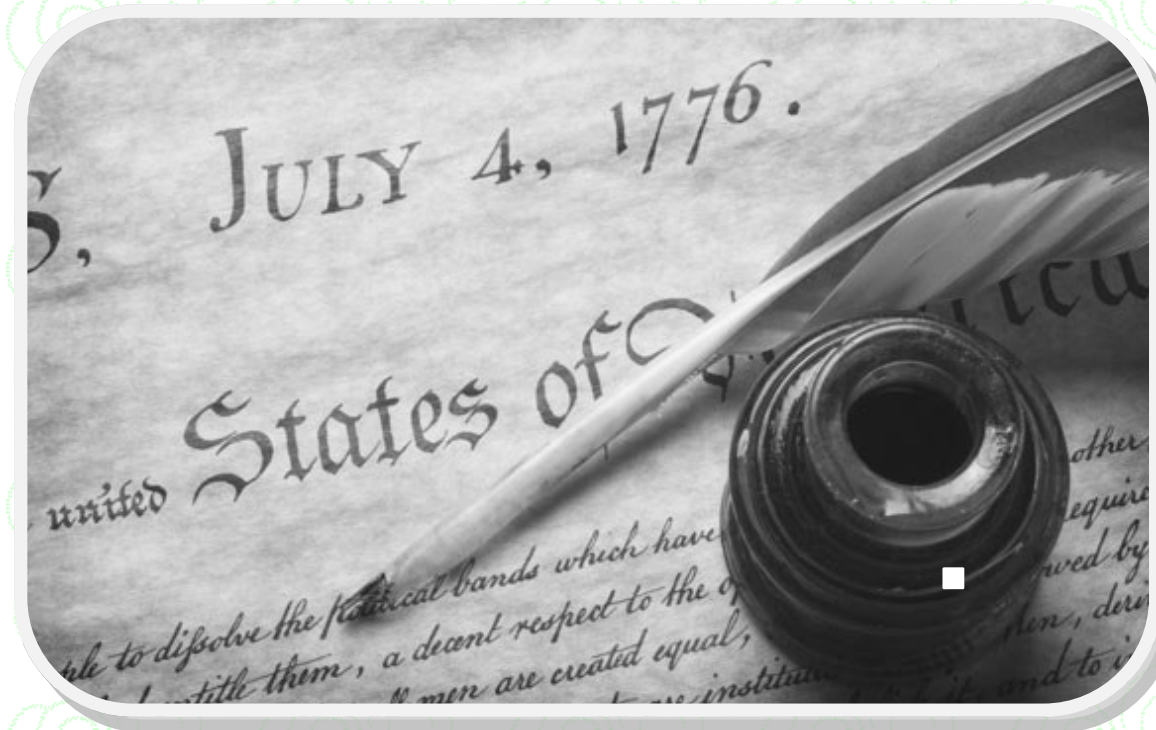 S, JULY 4, 1776.
united States of
ple to dissolve the political bands which have other
entitle them, a decent respect to the
men are created equal,
and to